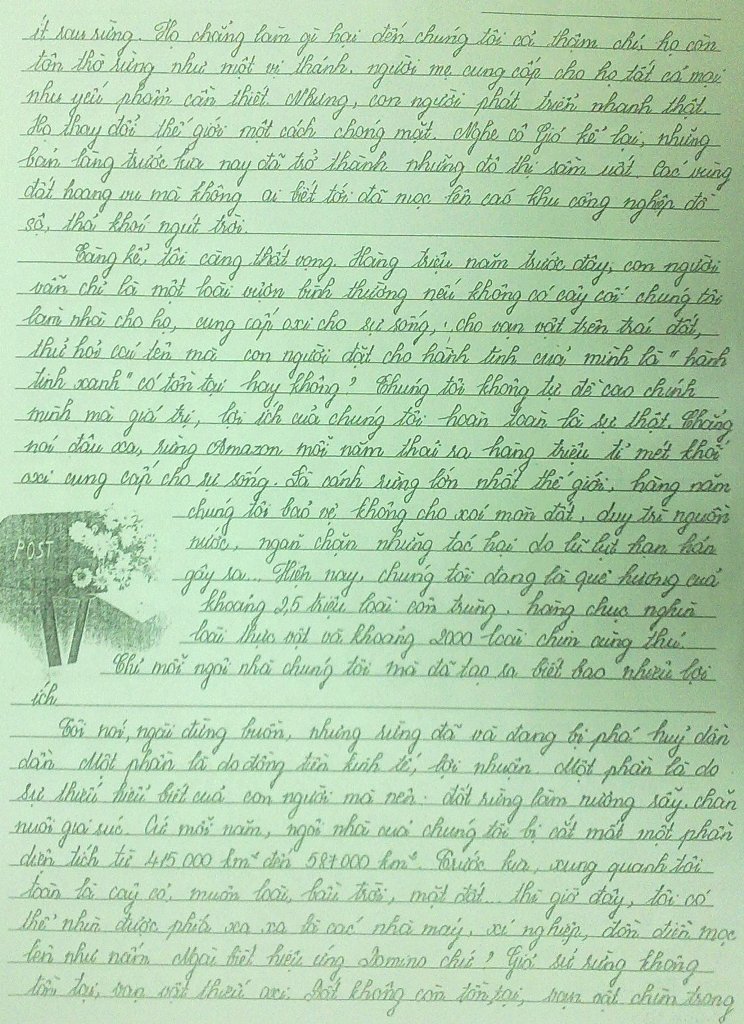 ít sau rừng. Họ chẳng làm gì hại đến chúng tôi cả thậm chí, họ còn
tôn thờ rừng như một vị thánh, người mẹ cung cấp cho họ tất cả mọi
nhu yếu phẩm cần thiết. Nhưng, con người phát triển nhanh thật.
Họ thay đổi thế giới một cách chóng mặt. Nghe cô Gió kể lại, những
bản làng trước kia nay đã trở thành những đô thị sầm uất. Các vùng
đất hoang vu mà không ai biết tới đã mọc lên các khu công nghệp đồ
sộ, thải khói ngút trời.
Càng kể, tôi càng thất vọng. Hàng triệu năm trước đây, con người
vẫn chỉ là một loài vượn bình thường nếu không có cây cối chúng tôi
làm nhà cho họ, cung cấp oxi cho sự sống, cho vạn vật trên trái đất,
thử hỏi cái tên mà con người đặt cho hành tinh của mình là "hành
tinh xanh" có tồn tại hay không? Chúng tôi không tự đề cao chính
mình mà giá trị, lợi ích của chúng tôi hoàn toàn là sự thật. Chẳng
nói đâu xa, rừng Amazon mỗi năm thải ra hàng triệu tỉ mét khối
oxi cung cấp cho sự sống. Là cánh rừng lớn nhất thế giới, hàng năm
chúng tôi bảo vệ không cho xói mòn đất, duy trì nguồn
POST
nước, ngăn chặn những tác hại do lũ lụt hạn hán
gây ra... Hiện nay, chúng tôi đang là quê hương của
khoảng 2,5 triệu loài côn trùng, hàng chục nghìn
loài thực vật và khoảng 2000 loài chim cùng thú.
Chỉ mỗi ngôi nhà chúng tôi mà đã tạo ra biết bao nhiêu lợi
ích.
Tôi nói, ngài đừng buồn, nhưng rừng đã và đang bị phá huỷ dần
dần. Một phần là do đồng tiền kinh tế, lợi nhuận. Một phần là do
sự thiếu hiểu biết của con người mà nên: đốt rừng làm nương rẫy, chăn
nuôi gia súc. Cứ mỗi năm, ngôi nhà của chúng tôi bị cắt mất một phần
diện tích từ 415 000 km² đến 587 000 km². Trước kia, xung quanh tôi
toàn là cây cỏ, muôn loài, bầu trời, mặt đất... thì giờ đây, tôi có
thể nhìn được phía xa xa là các nhà máy, xí nghiệp, đồn điền mọc
lên như nấm. Ngài biết hiệu ứng Domino chứ? Giả sử rừng không
tồn tại, vạn vật thiếu oxi. Đất không còn tồn tại, vạn vật chìm trong